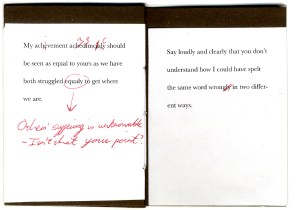 My achivement should
be seen as equal to yours as we have
both struggled equally to get where
we are.
Others' suffering is unknowable
- Isn't that your point?
Say loudly and clearly that you don't
understand how I could have spelt
the same word in two differ-
ent ways.